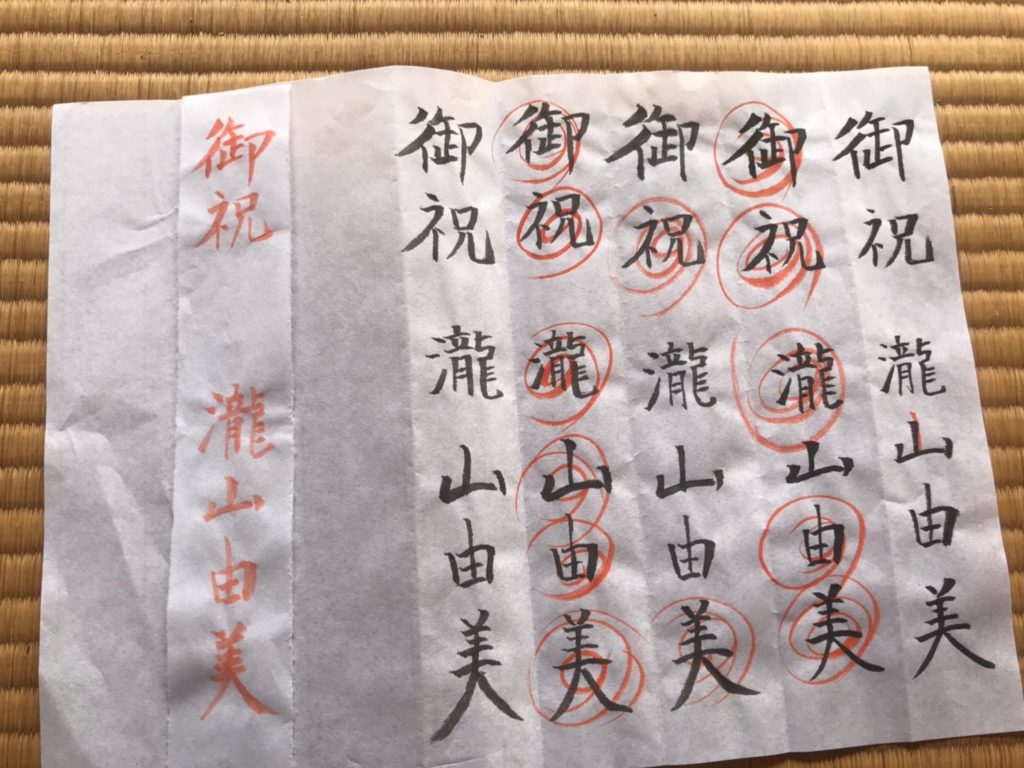 御祝 瀧山由美
御祝 瀧山由美
御祝 瀧山由美
御祝 瀧山由美
御祝 瀧山由美
御祝 瀧山由美